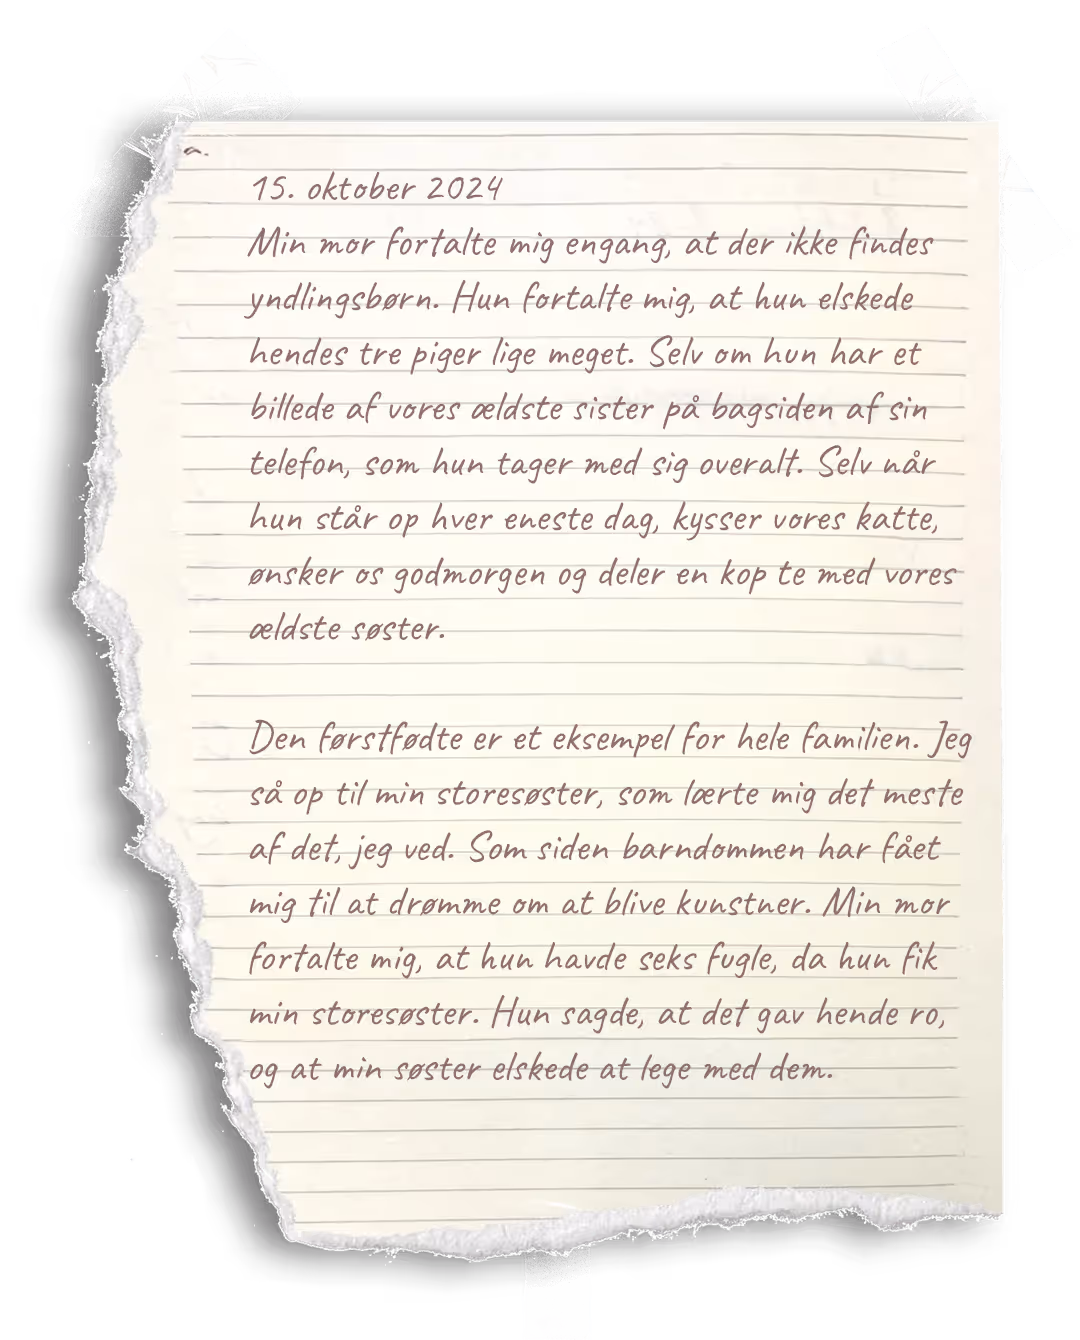 15. oktober 2024
Min mor fortalte mig engang, at der ikke findes
yndlingsbørn. Hun fortalte mig, at hun elskede
hendes tre piger lige meget. Selv om hun har et
billede af vores ældste sister på bagsiden af sin
telefon, som hun tager med sig overalt. Selv når
hun står op hver eneste dag, kysser vores katte,
ønsker os godmorgen og deler en kop te med vores
ældste søster.
Den førstfødte er et eksempel for hele familien. Jeg
så op til min storesøster, som lærte mig det meste
af det, jeg ved. Som siden barndommen har fået
mig til at drømme om at blive kunstner. Min mor
fortalte mig, at hun havde seks fugle, da hun fik
min storesøster. Hun sagde, at det gav hende ro,
og at min søster elskede at lege med dem.